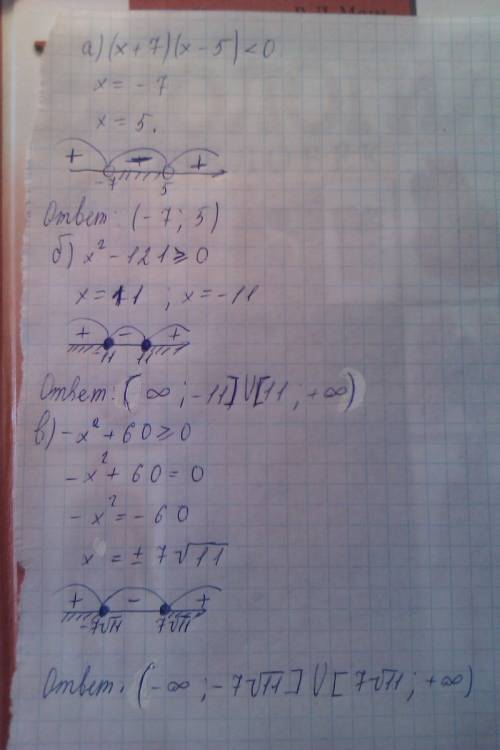 а) (x+7)(x-5)<0
x = -7
x = 5.
+ - +
-7 5
Ответ: (-7; 5)
б) x² - 121 ≥ 0
x = 11 ; x = -11
+ - +
-11 11
Ответ: (∞; -11] U [11; +∞)
в) -x² + 60 ≥ 0
-x² + 60 = 0
-x² = -60
x = ± 7√11
+ - +
-7√11 7√11
Ответ. (-∞; -7√11] U [7√11; +∞)